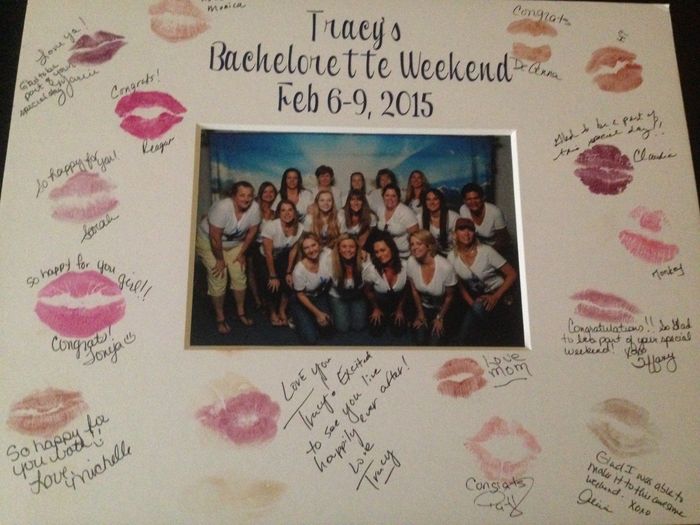 Tracy's
Bachelorette Weekend
Feb 6-9, 2015
Monica
Love ya!
part of your
special day
Congrats!
Reagan
So happy for you!
Sarah
So happy for you girl!!
Congrats!
Tonya
So happy for
you both!
Love, Michelle
Love you
Tracy. Excited
to see you live
happily ever after!
Love
Tracy
Love
Mom
Congrats
Congrats
DeAnna
Glad to be a part of
this special day!!
Claudia
Monkey
Congratulations!! So Glad
to be part of your special
weekend! xoxo
Tiffany
Glad I was able to
make it to this awesome
weekend. xoxo